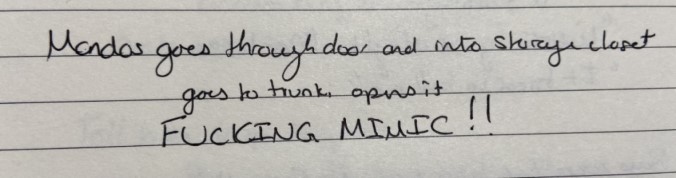 Mandos goes through door and into storage closet
goes to trunk, opens it
FUCKING MIMIC !!